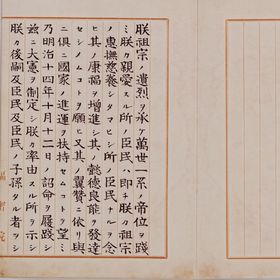 朕祖宗ノ遺烈ヲ承ケ萬世一系ノ帝位ヲ踐
ミ朕カ親愛スル所ノ臣民ハ卽チ朕カ祖宗
ノ惠撫慈養シタマヒシ所ノ臣民ナルヲ念
ヒ其ノ康福ヲ增進シ其ノ懿德良能ヲ發達
セシメムコトヲ願ヒ又其ノ翼贊ニ依リ與
ニ俱ニ國家ノ進運ヲ扶持セムコトヲ望ミ
乃チ明治十四年十月十二日ノ詔命ヲ履踐シ
茲ニ大憲ヲ制定シ朕カ率由スル所ヲ示シ
朕カ後嗣及臣民及臣民ノ子孫タル者ヲシ
密院